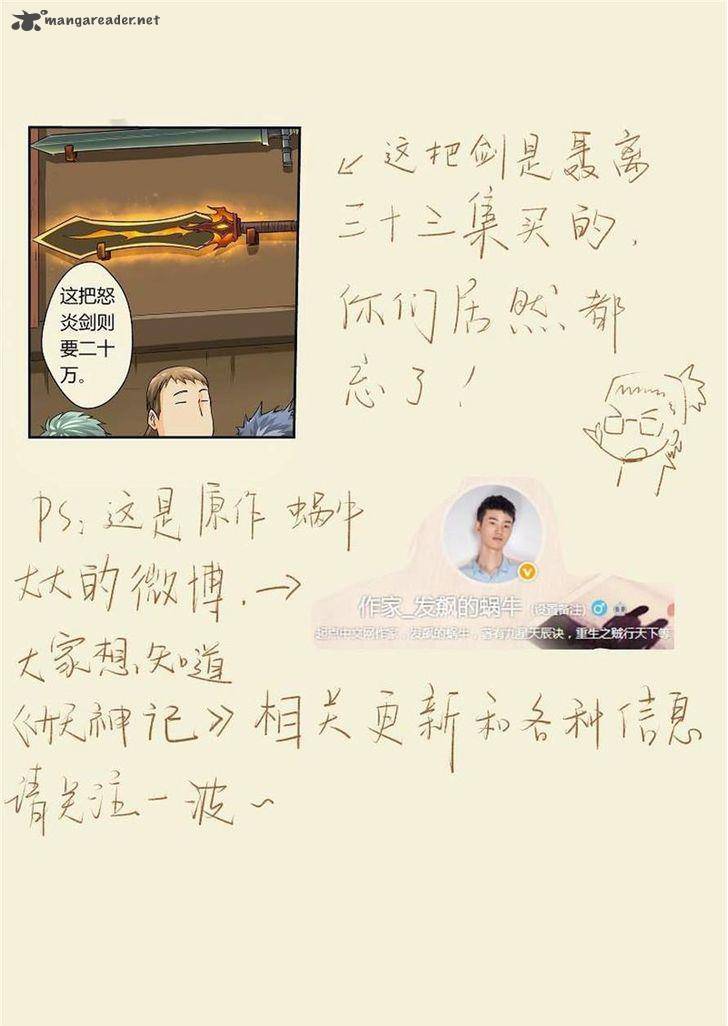 mangareader.net
这把怒
炎剑则
要二十
万。
↙这把剑是聂离
三十三集买的,
你们居然都
忘了!
PS:这是原作蜗牛
大大的微博.→
作家_发飙的蜗牛 (设置备注)
起点中文网作家,发飙的蜗牛,著有九星天辰诀,重生之贼行天下等
大家想知道
《妖神记》相关更新和各种信息
请关注一波~